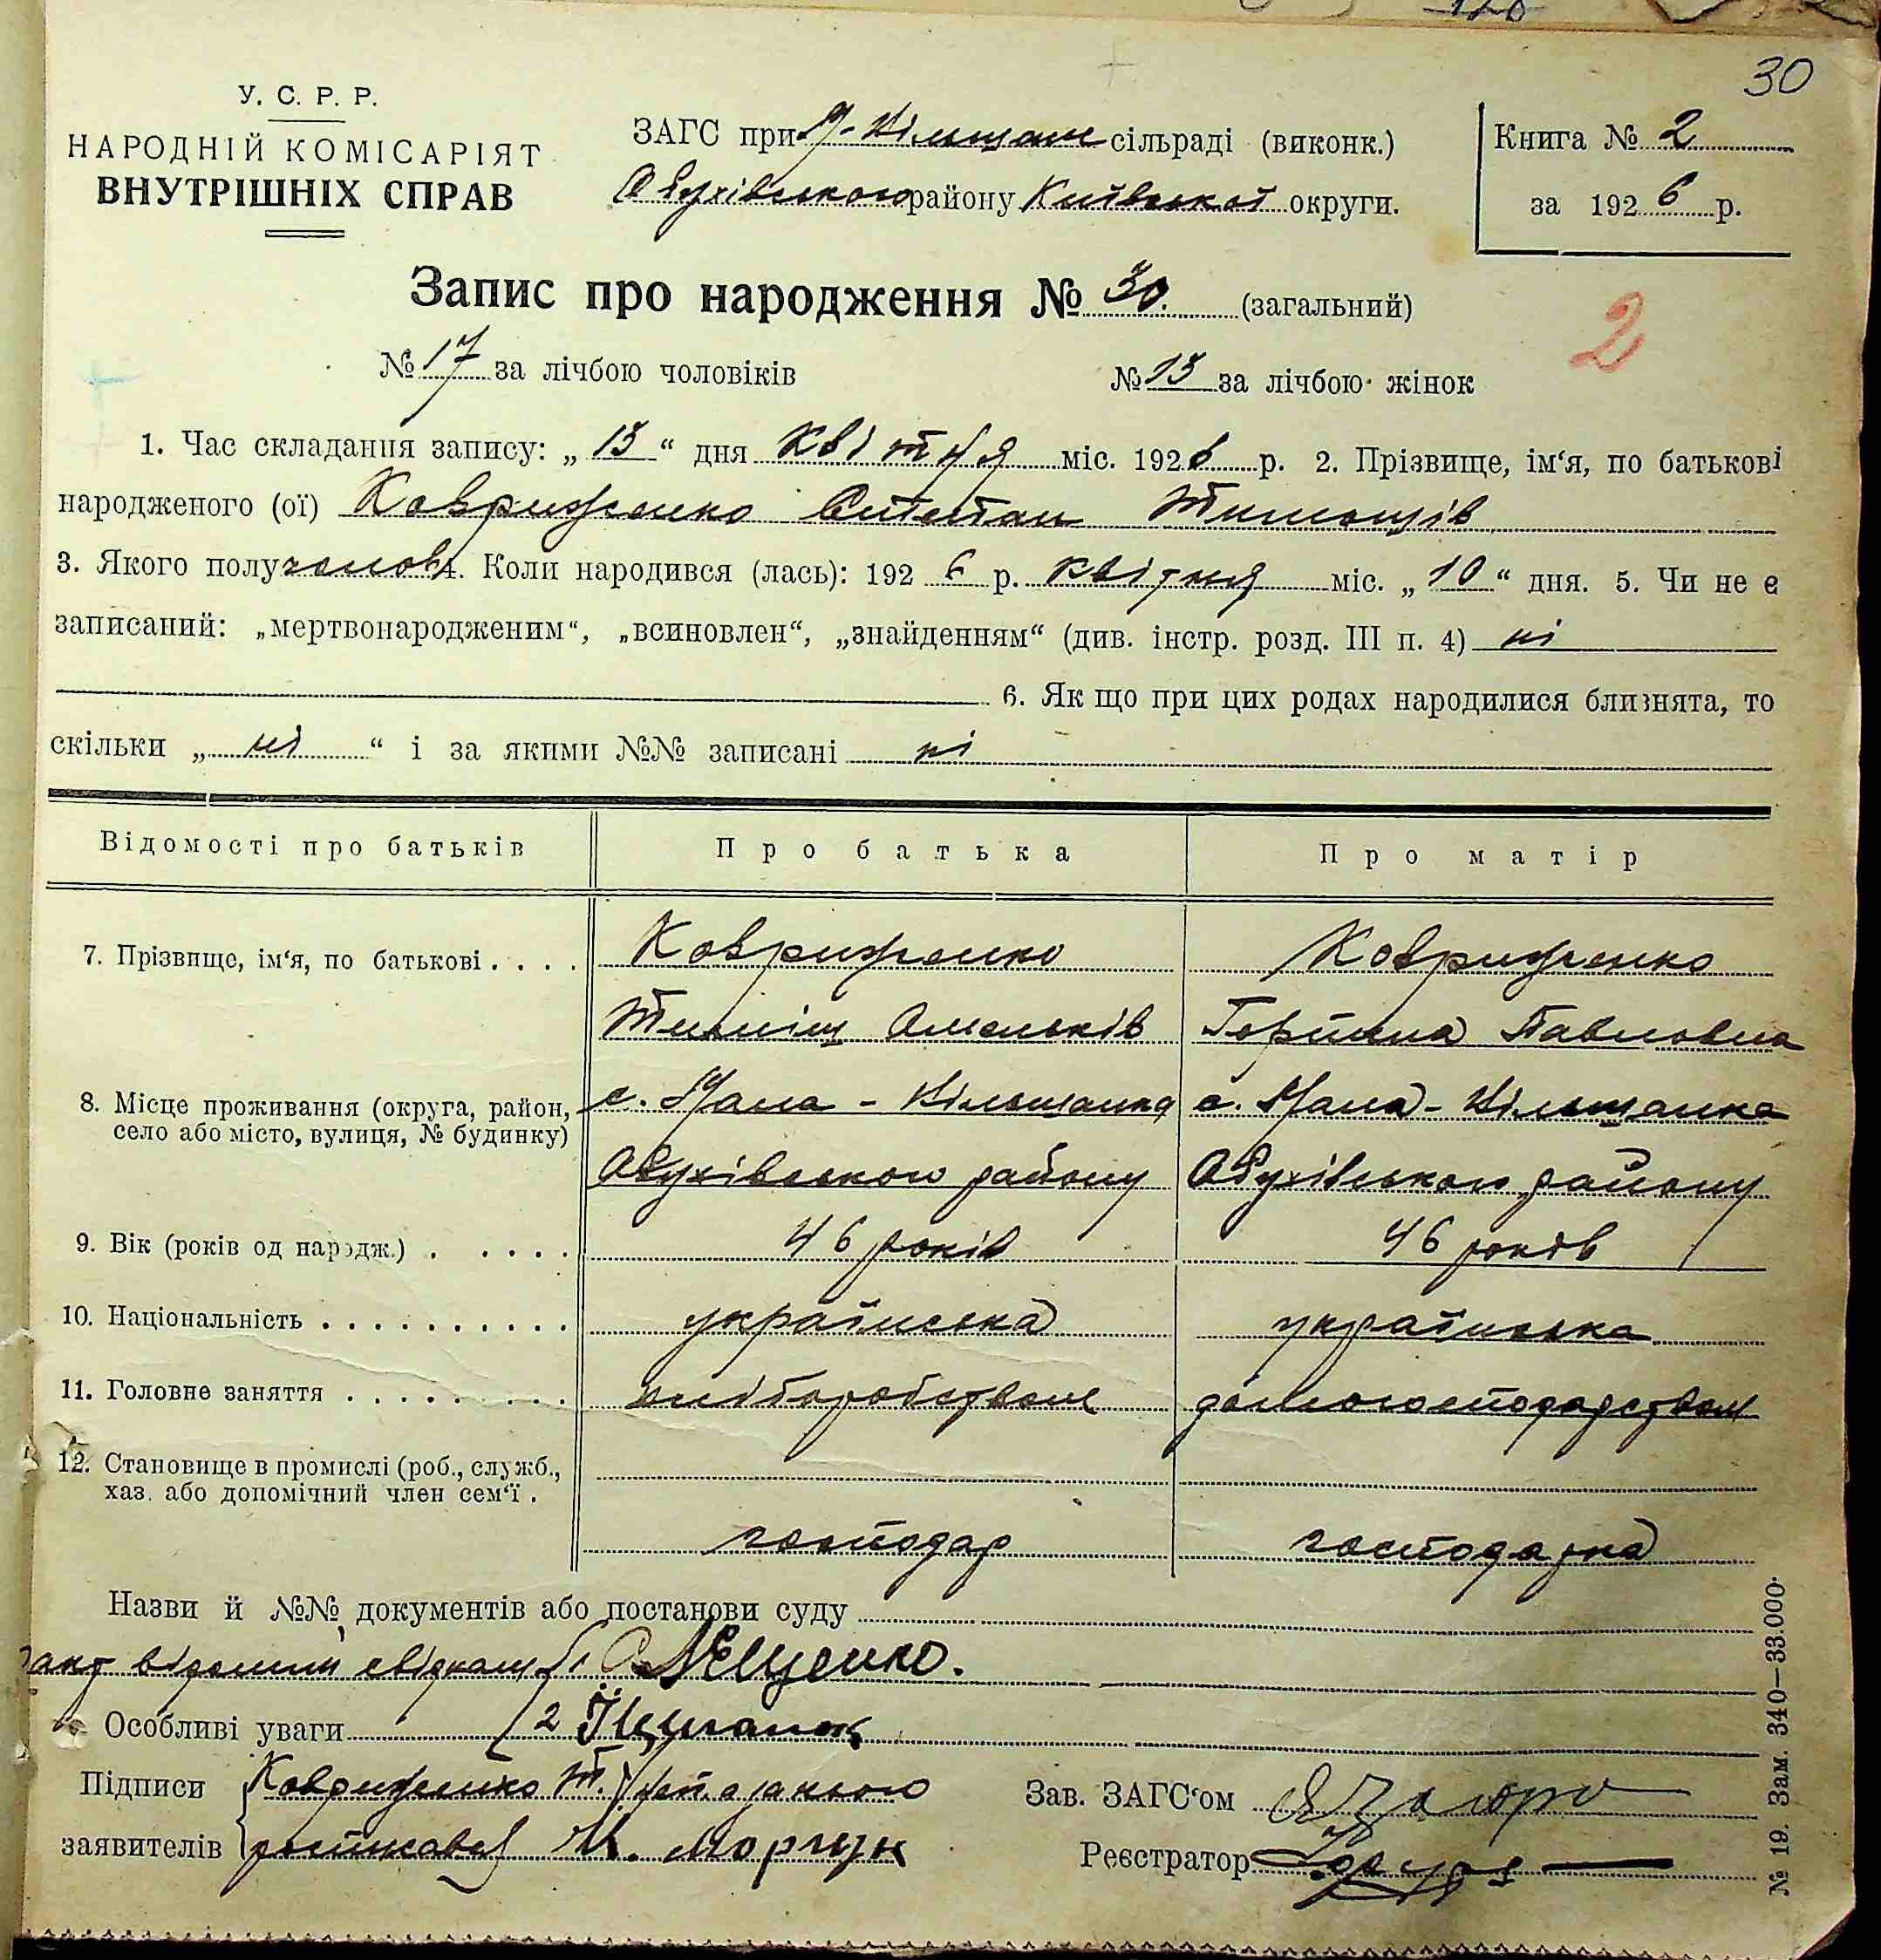 30
У. С. Р. Р.
НАРОДНІЙ КОМІСАРІЯТ
ВНУТРІШНІХ СПРАВ
ЗАГС при М-Вільшан сільраді (виконк.)
Обухівського району Київської округи.
Книга № 2
за 1926 р.
Запис про народження № 30. (загальний)
2
№ 17 за лічбою чоловіків № 13 за лічбою жінок
1. Час складання запису: „13“ дня Квітня міс. 1926 р. 2. Прізвище, ім‘я, по батькові
народженого (ої) Ковриженко Степан Тимошів
3. Якого полу чолов. Коли народився (лась): 1926 р. квітня міс. „10“ дня. 5. Чи не є
записаний: „мертвонародженим“, „всиновлен“, „знайденням“ (див. інстр. розд. III п. 4) ні
6. Як що при цих родах народилися близнята, то
скільки „ні“ і за якими №№ записані ні
Відомості про батьків Про батька Про матір
7. Прізвище, ім‘я, по батькові . . . . Ковриженко Ковриженко
Тиміш Омельків Горпина Павловна
8. Місце проживання (округа, район, с. Мала - Вільшанка с. Мала - Вільшанка
село або місто, вулиця, № будинку)
Обухівського району Обухівського району
9. Вік (років од народж.) . . . . . 46 років 46 років
10. Національність . . . . . . . . . . українська українська
11. Головне заняття . . . . . . . . . хліборобством домогосподарством
12. Становище в промислі (роб., служб.,
хаз. або допомічний член сем‘ї .
господар господарка
Назви й №№ документів або постанови суду
акт відомий свідкам 1 Лещенко.
Особливі уваги 2
Підписи Ковриженко Т.
заявителів М. Моргун
Зав. ЗАГС‘ом
Реєстратор
№ 19. Зам. 340—33.000.